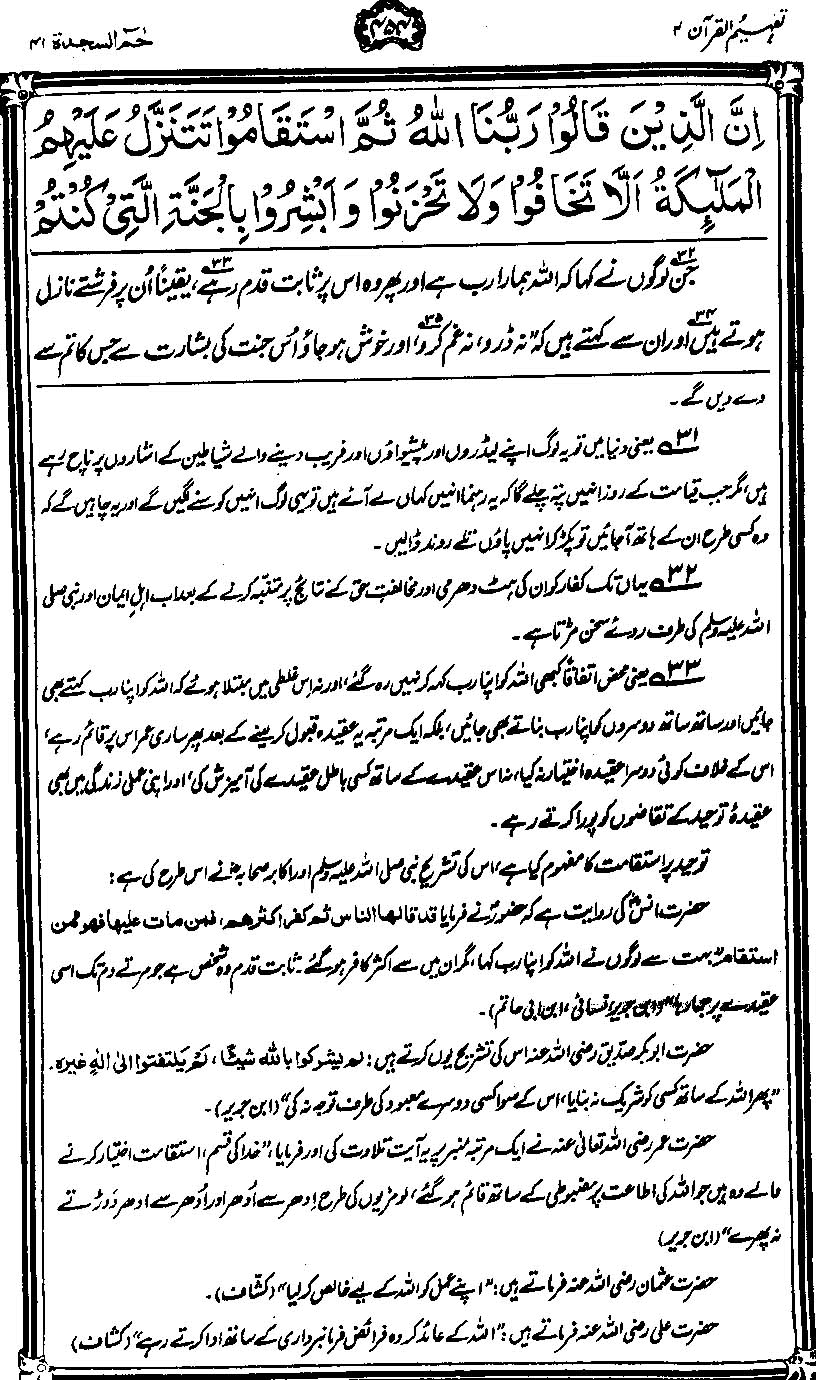 تفہیم القرآن ۴
۴۵۴
حٰمٓ السجدۃ ۴۱
اِنَّ الَّذِیْنَ قَالُوْا رَبُّنَا اللّٰهُ ثُمَّ اسْتَقَامُوْا تَتَنَزَّلُ عَلَیْهِمُ
الْمَلٰٓئِكَةُ اَلَّا تَخَافُوْا وَلَا تَحْزَنُوْا وَاَبْشِرُوْا بِالْجَنَّةِ الَّتِیْ كُنْتُمْ
جن۳۲ لوگوں نے کہا کہ اللہ ہمارا رب ہے اور پھر وہ اس پر ثابت قدم رہے۳۳، یقیناً اُن پر فرشتے نازل
ہوتے ہیں۳۴ اور ان سے کہتے ہیں کہ ”نہ ڈرو، نہ غم کرو۳۵، اور خوش ہو جاؤ اُس جنت کی بشارت سے جس کا تم سے
دے دیں گے۔
۳۱ یعنی دنیا میں تو یہ لوگ اپنے لیڈروں اور پیشواؤں اور فریب دینے والے شیاطین کے اشاروں پر ناچ رہے
ہیں، مگر جب قیامت کے روز انہیں پتہ چلے گا کہ یہ رہنما انہیں کہاں لے آئے ہیں تو یہی لوگ انہیں کوسنے لگیں گے اور یہ چاہیں گے کہ
وہ کسی طرح ان کے ہاتھ آجائیں تو پکڑ کر انہیں پاؤں تلے روند ڈالیں۔
۳۲ یہاں تک کفار کو ان کی ہٹ دھرمی اور مخالفتِ حق کے نتائج پر متنبّہ کرنے کے بعد اب اہلِ ایمان اور نبی صلی
اللہ علیہ وسلم کی طرف روئے سخن مڑتا ہے۔
۳۳ یعنی محض اتفاقاً کبھی اللہ کو اپنا رب کہہ کر نہیں رہ گئے، اور نہ اس غلطی میں مبتلا ہوئے کہ اللہ کو اپنا رب کہتے بھی
جائیں اور ساتھ ساتھ دوسروں کو اپنا رب بناتے بھی جائیں، بلکہ ایک مرتبہ یہ عقیدہ قبول کر لینے کے بعد پھر ساری عمر اس پر قائم رہے،
اس کے خلاف کوئی دوسرا عقیدہ اختیار نہ کیا، نہ اس عقیدے کے ساتھ کسی باطل عقیدے کی آمیزش کی، اور اپنی عملی زندگی میں بھی
عقیدۂ توحید کے تقاضوں کو پورا کرتے رہے۔
توحید پر استقامت کا مفہوم کیا ہے، اس کی تشریح نبی صلی اللہ علیہ وسلم اور اکابر صحابہؓ نے اس طرح کی ہے:
حضرت انسؓ کی روایت ہے کہ حضورؐ نے فرمایا قد قالھا الناس ثم کفر اکثرھم، فمن مات علیھا فھو ممن
استقام ”بہت سے لوگوں نے اللہ کو اپنا رب کہا، مگر ان میں سے اکثر کافر ہو گئے۔ ثابت قدم وہ شخص ہے جو مرتے دم تک اسی
عقیدے پر جما رہا“ (ابن جریر، نسائی، ابن ابی حاتم)۔
حضرت ابوبکر صدیق رضی اللہ عنہ اس کی تشریح یوں کرتے ہیں: لم یشرکوا باللہ شیئًا، لم یلتفتوا الیٰ الٰهٍ غیرہ۔
”پھر اللہ کے ساتھ کسی کو شریک نہ بنایا، اس کے سوا کسی دوسرے معبود کی طرف توجہ نہ کی“ (ابن جریر)۔
حضرت عمر رضی اللہ تعالیٰ عنہ نے ایک مرتبہ منبر پر یہ آیت تلاوت کی اور فرمایا، ”خدا کی قسم، استقامت اختیار کرنے
والے وہ ہیں جو اللہ کی اطاعت پر مضبوطی کے ساتھ قائم ہو گئے، لومڑیوں کی طرح اِدھر سے اُدھر اور اُدھر سے اِدھر دَوڑتے
نہ پھرے“ (ابن جریر)
حضرت عثمان رضی اللہ عنہ فرماتے ہیں: ”اپنے عمل کو اللہ کے لیے خالص کر لیا“ (کشاف)۔
حضرت علی رضی اللہ عنہ فرماتے ہیں: ”اللہ کے عائد کردہ فرائض فرمانبرداری کے ساتھ ادا کرتے رہے“ (کشاف)